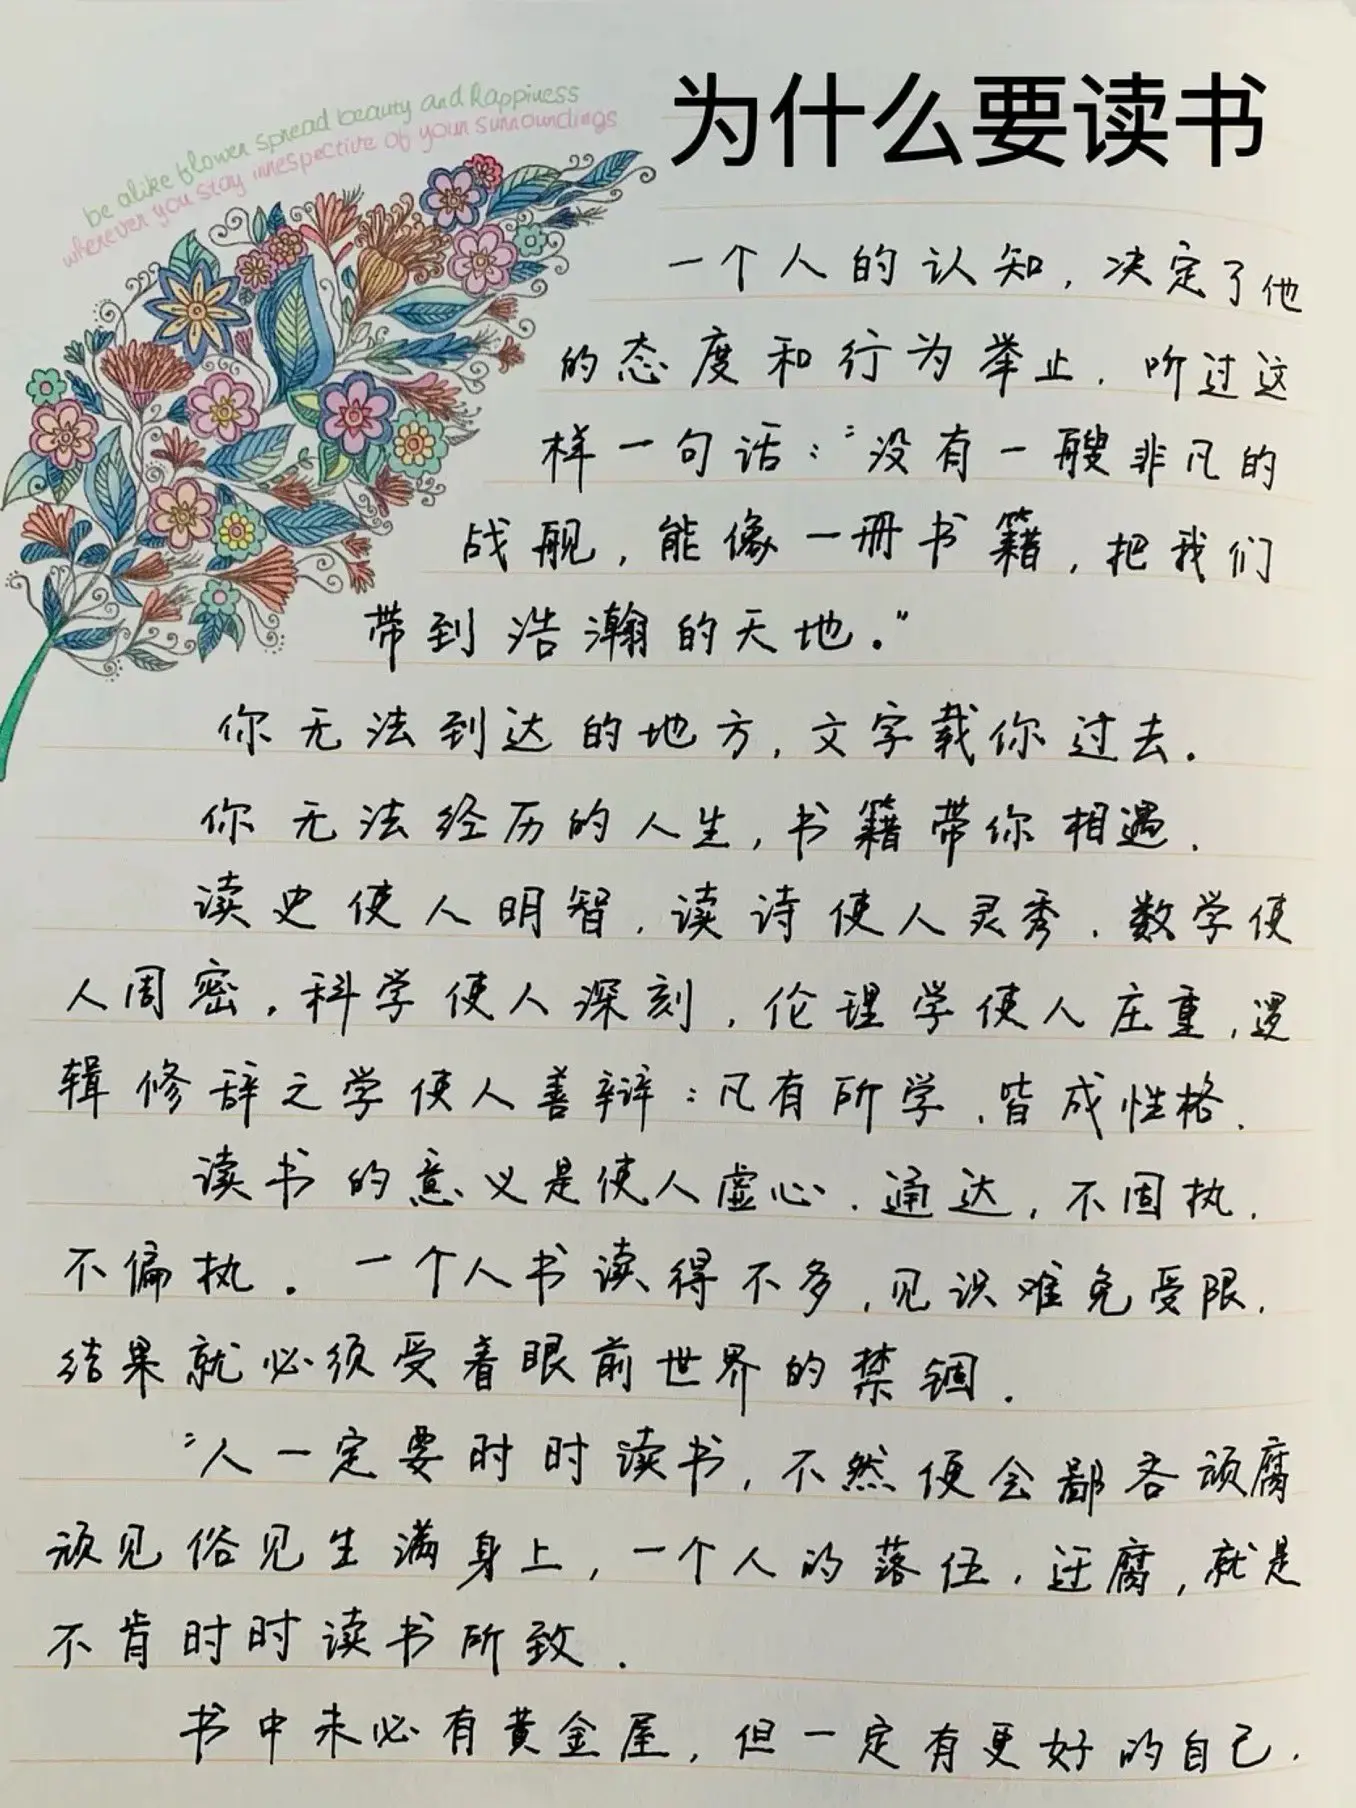 be alike flower spread beauty and happiness
wherever you stay irrespective of your surroundings
为什么要读书
一个人的认知，决定了他
的态度和行为举止．听过这
样一句话：“没有一艘非凡的
战舰，能像一册书籍，把我们
带到浩瀚的天地。”
你无法到达的地方，文字载你过去．
你无法经历的人生，书籍带你相遇．
读史使人明智，读诗使人灵秀．数学使
人周密．科学使人深刻，伦理学使人庄重，逻
辑修辞之学使人善辩：凡有所学，皆成性格．
读书的意义是使人虚心．通达，不固执．
不偏执．一个人书读得不多，见识难免受限．
结果就必须受着眼前世界的禁锢．
“人一定要时时读书，不然便会鄙吝顽腐
顽见俗见生满身上，一个人的落伍．迂腐，就是
不肯时时读书所致．
书中未必有黄金屋，但一定有更好的自己．